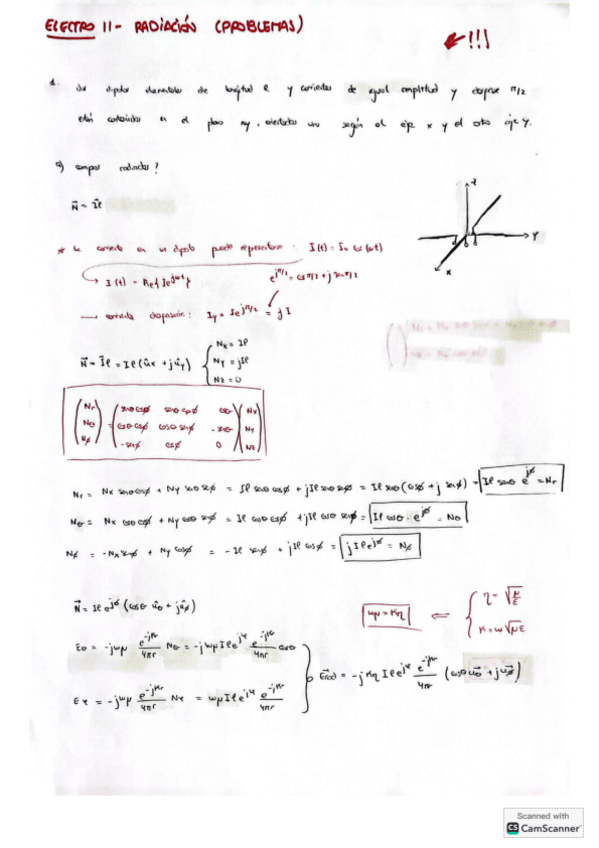 ELECTRO 11 - RADIACIÓN (PROBLEMAS)
←!!!
1. Dos dipolos elementales de longitud ℓ y corrientes de igual amplitud y desfase π/2
están contenidos en el plano xy, orientados uno según el eje x y el otro eje y.
a) campos radiados?
N⃗ = I⃗ℓ
z
y
x
* La corriente en un dipolo puede representarse: I(t) = I₀ cos(ωt)
→ I(t) = Re{I e^{jωt}}
e^{jπ/2} = cos π/2 + j sen π/2
→ corriente desfasación: Iy = I e^{jπ/2} = jI
N⃗ = I⃗ℓ = Iℓ(ûx + jûy) { Nx = Iℓ
Ny = jIℓ
Nz = 0
(Nr) (senθ cosϕ senθ senϕ cosθ) (Nx)
(Nθ) = (cosθ cosϕ cosθ senϕ -senθ) (Ny)
(Nϕ) (-senϕ cosϕ 0) (Nz)
Nr = Nx senθ cosϕ + Ny senθ senϕ = Iℓ senθ cosϕ + jIℓ senθ senϕ = Iℓ senθ (cosϕ + j senϕ) = Iℓ senθ e^{jϕ} = Nr
Nθ = Nx cosϕ cosθ + Ny cosθ senϕ = Iℓ cosθ cosϕ + jIℓ cosθ senϕ = Iℓ cosθ · e^{jϕ} = Nθ
Nϕ = -Nx senϕ + Ny cosϕ = -Iℓ senϕ + jIℓ cosϕ = jIℓ e^{jϕ} = Nϕ
N⃗ = Iℓ e^{jϕ} (cosθ ûθ + jûϕ)
ωμ = Kη ⇐ { η = √(μ/ε)
K = ω√(με)
Eθ = -jωμ e^{-jKr}/4πr Nθ = -jωμ Iℓ e^{jϕ} e^{-jKr}/4πr cosθ
Eϕ = -jωμ e^{-jKr}/4πr Nϕ = ωμ Iℓ e^{jϕ} e^{-jKr}/4πr
E⃗rad = -jKη Iℓ e^{jϕ} e^{-jKr}/4πr (cosθ u⃗θ + ju⃗ϕ)
Scanned with
CS CamScanner